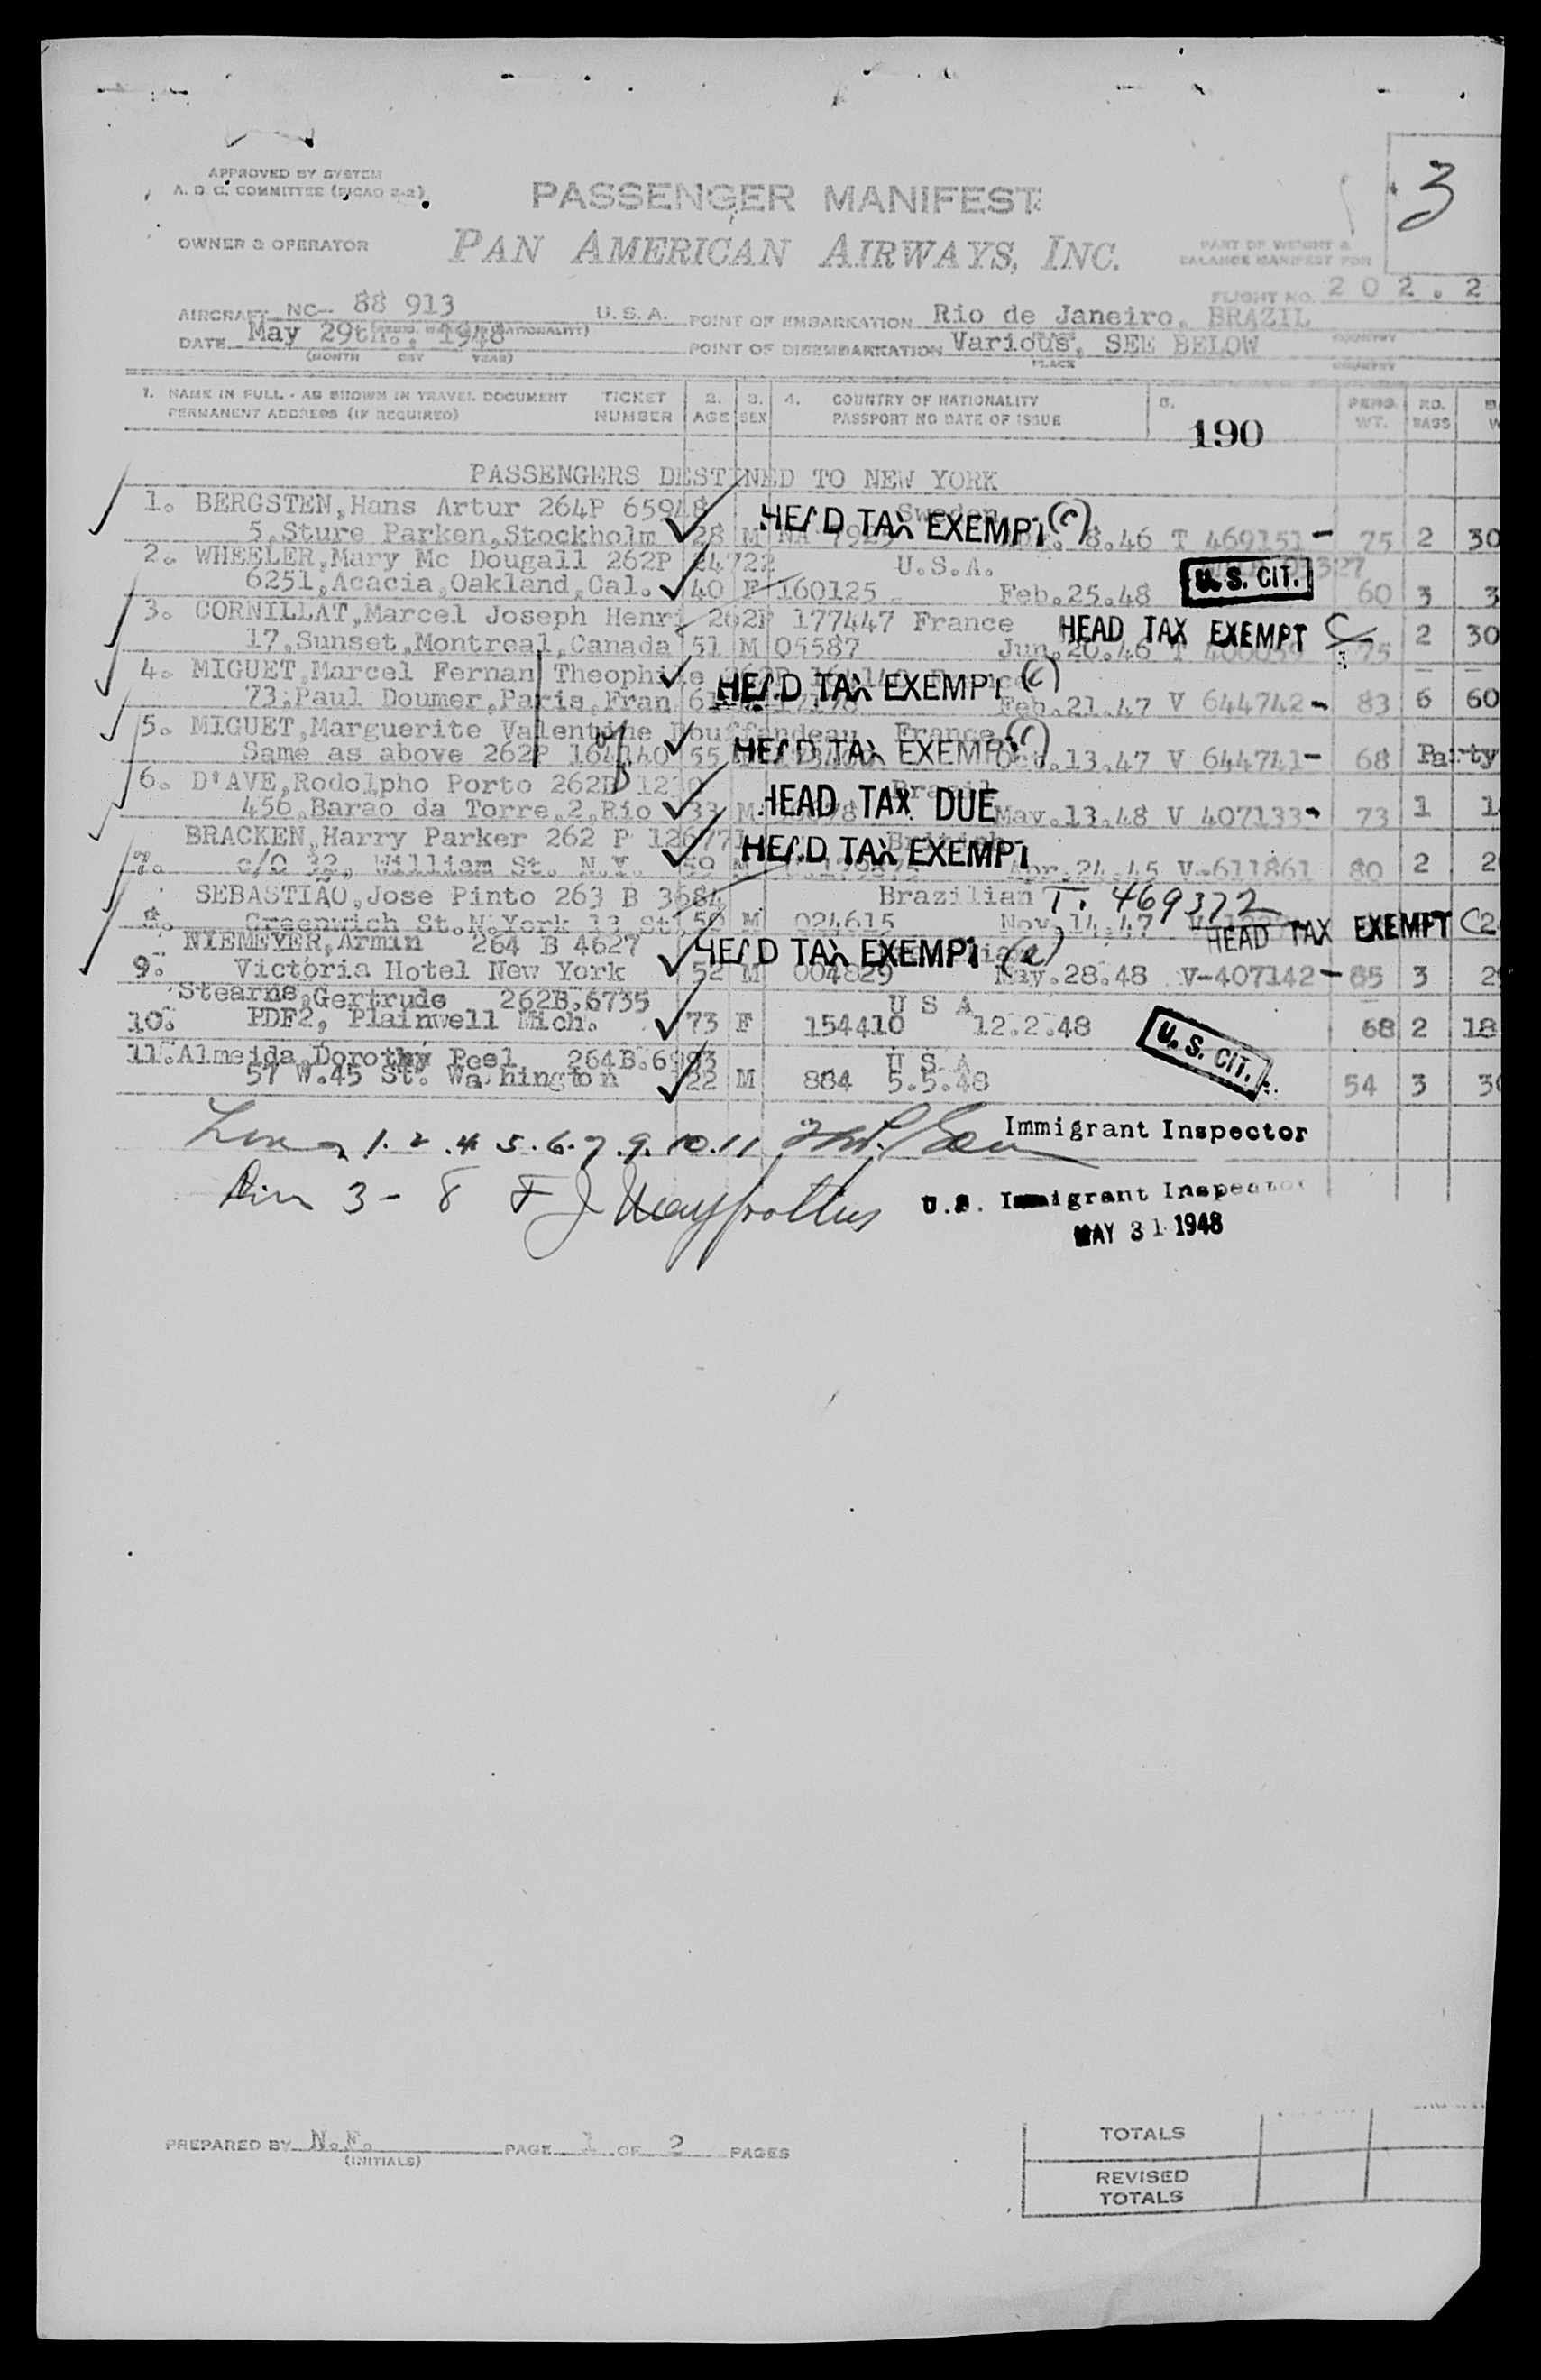 3
APPROVED BY SYSTEM
A. D C. COMMITTEE
PASSENGER MANIFEST
OWNER & OPERATOR
PAN AMERICAN AIRWAYS, INC.
PART OF WEIGHT &
BALANCE MANIFEST FOR
FLIGHT NO. 202.2
AIRCRAFT NC- 88 913 U.S.A. POINT OF EMBARKATION Rio de Janeiro, BRAZIL
DATE May 29th., 1948 POINT OF DISEMBARKATION Various, SEE BELOW
(MONTH DAY YEAR) PLACE COUNTRY
1. NAME IN FULL - AS SHOWN IN TRAVEL DOCUMENT TICKET 2. 3. 4. COUNTRY OF NATIONALITY 5. PERS. NO.
PERMANENT ADDRESS (IF REQUIRED) NUMBER AGE SEX PASSPORT NO DATE OF ISSUE 190 WT. BAGS
PASSENGERS DESTINED TO NEW YORK
1. BERGSTEN,Hans Artur 264P 65948 Sweden
5,Sture Parken,Stockholm 28 M HEAD TAX EXEMPT (c) 8.46 T 469151- 75 2 30
2. WHEELER,Mary Mc Dougall 262P 24722 U.S.A.
6251,Acacia,Oakland,Cal. 40 F 160125 Feb.25.48 U.S. CIT. 60 3 3
3. CORNILLAT,Marcel Joseph Henri 262P 177447 France HEAD TAX EXEMPT C
17,Sunset,Montreal,Canada 51 M 05587 Jun.20.46 T 75 2 30
4. MIGUET,Marcel Fernan Theophile HEAD TAX EXEMPT (c)
73,Paul Doumer,Paris,Fran Feb.21.47 V 644742- 83 6 60
5. MIGUET,Marguerite Valentine Bouffandeau France (c)
Same as above 262P 164140 55 HEAD TAX EXEMPT .13.47 V 644741- 68 Party
6. D'AVE,Rodolpho Porto 262B Brazil
456,Barao da Torre,2,Rio 33 M HEAD TAX DUE May.13.48 V 407133- 73 1
BRACKEN,Harry Parker 262 P 126771 British
7. c/O 32, William St. N.Y. 59 M HEAD TAX EXEMPT Apr.24.45 V-611861 80 2
SEBASTIÃO,Jose Pinto 263 B 3684 Brazilian T. 469372
8. Greenwich St.N.York 13 St. 50 M 024615 Nov.14.47 HEAD TAX EXEMPT
NIEMEYER,Armin 264 B 4627 HEAD TAX EXEMPT
9. Victoria Hotel New York 52 M 004829 May.28.48 V-407142- 85 3
Stearns,Gertrude 262B.6735 U S A
10. PDF2, Plainwell Mich. 73 F 154410 12.2.48 68 2 18
11.Almeida,Dorothy Peel 264B.6993 U S A U.S. CIT.
57 W.45 St. Washington 22 M 884 5.5.48 54 3
1. 2 .4 5. 6. 7 .9. 10. 11 Immigrant Inspector
3 - 8 F J U.S. Immigrant Inspector
MAY 31 1948
PREPARED BY N.F. PAGE 1 OF 2 PAGES
(INITIALS)
TOTALS
REVISED
TOTALS